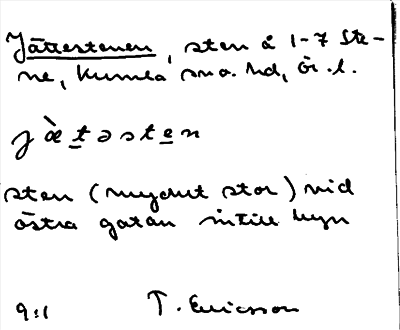 Jättestenen, sten å 1-7 Ste-
ne, Kumla sn o. hd, Ör. l.
jὰtəsten
sten (mycket stor) vid
östra gatan intill byn
9:1 T. Ericsson